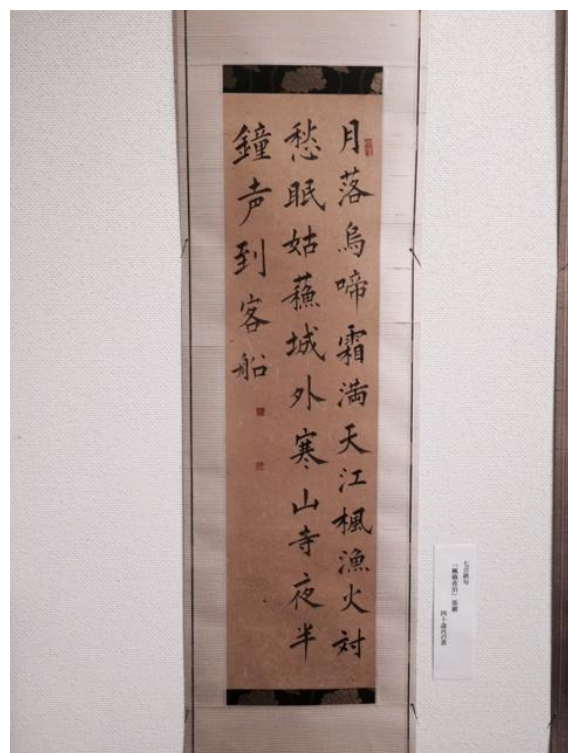 月落烏啼霜満天江楓漁火対
愁眠姑蘓城外寒山寺夜半
鐘声到客船
七言絶句
「楓橋夜泊」張継